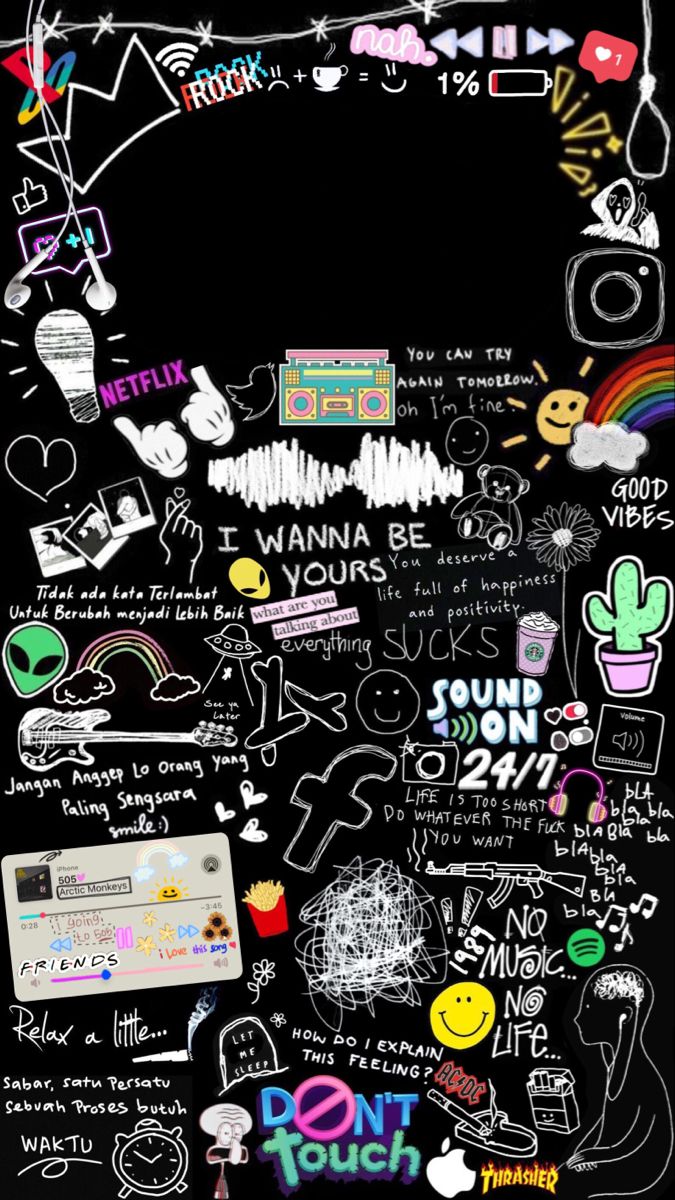 nah.
1
ROCK
+
=
1%
+1
NETFLIX
YOU CAN TRY
AGAIN TOMORROW.
oh I'm fine.
GOOD
VIBES
I WANNA BE
YOURS
You deserve a
life full of happiness
and positivity.
Tidak ada kata Terlambat
Untuk Berubah menjadi Lebih Baik
what are you
talking about
everything SUCKS
See ya
Later
SOUND
ON
24/7
Volume
Jangan Anggep Lo Orang yang
Paling Sengsara
smile:)
LIFE IS TOO SHORT
DO WHATEVER THE FUCK
YOU WANT
bLA
bla bla
blA Bla bla
blA
bla
bla
BLA
bla
iPhone
505
Arctic Monkeys
0:28
-3:45
I going
to 505
i Love this song
FRIENDS
1989
NO
MUSIC...
NO
LIFE...
Relax a little...
LET
ME
SLEEP
HOW DO I EXPLAIN
THIS FEELING?
AC/DC
Sabar, satu Persatu
sebuah Proses butuh
WAKTU
DON'T
touch
THRASHER